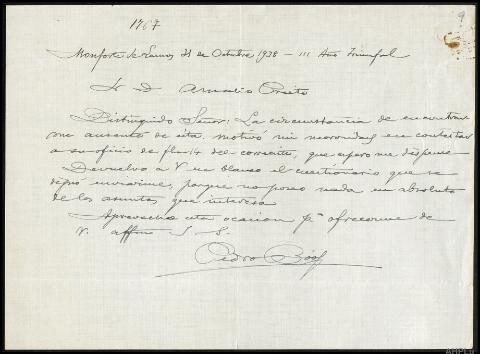 1767
9
Monforte de Lemos 31 de Octubre 1938 - III Año Triunfal
Sr. D. Amalio Prieto
Distinguido Señor: La circunstancia de encontrar
me ausente de esta, motivó mi morosidad en contestar
a su oficio de fha 14 del corriente, que espero me dispense
Devuelvo a V en blanco el cuestionario que se
dignó enviarme, porque no poseo nada en absoluto
de los asuntos que interesa
Aprovecho esta ocasion pª ofrecerme de
V. affmo S. S.
Pedro
AHPLu